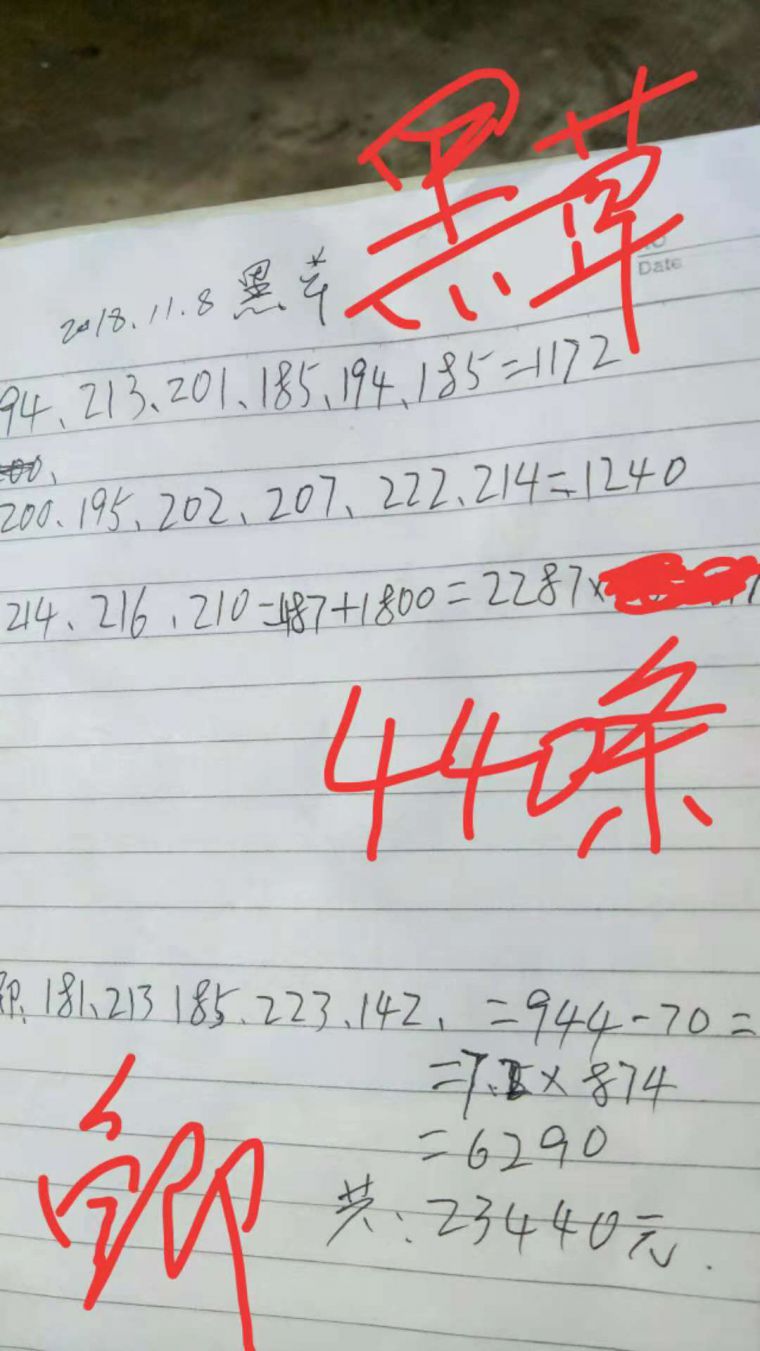 黑草
Date
2018.11.8 黑草
94、213、201、185、194、185=1172
200、195、202、207、222、214=1240
214、216、210=487+1800=2287×
440条
181、213 185、223、142、=944-70=
=7.2×874
=6290
鲫
共:23440元.